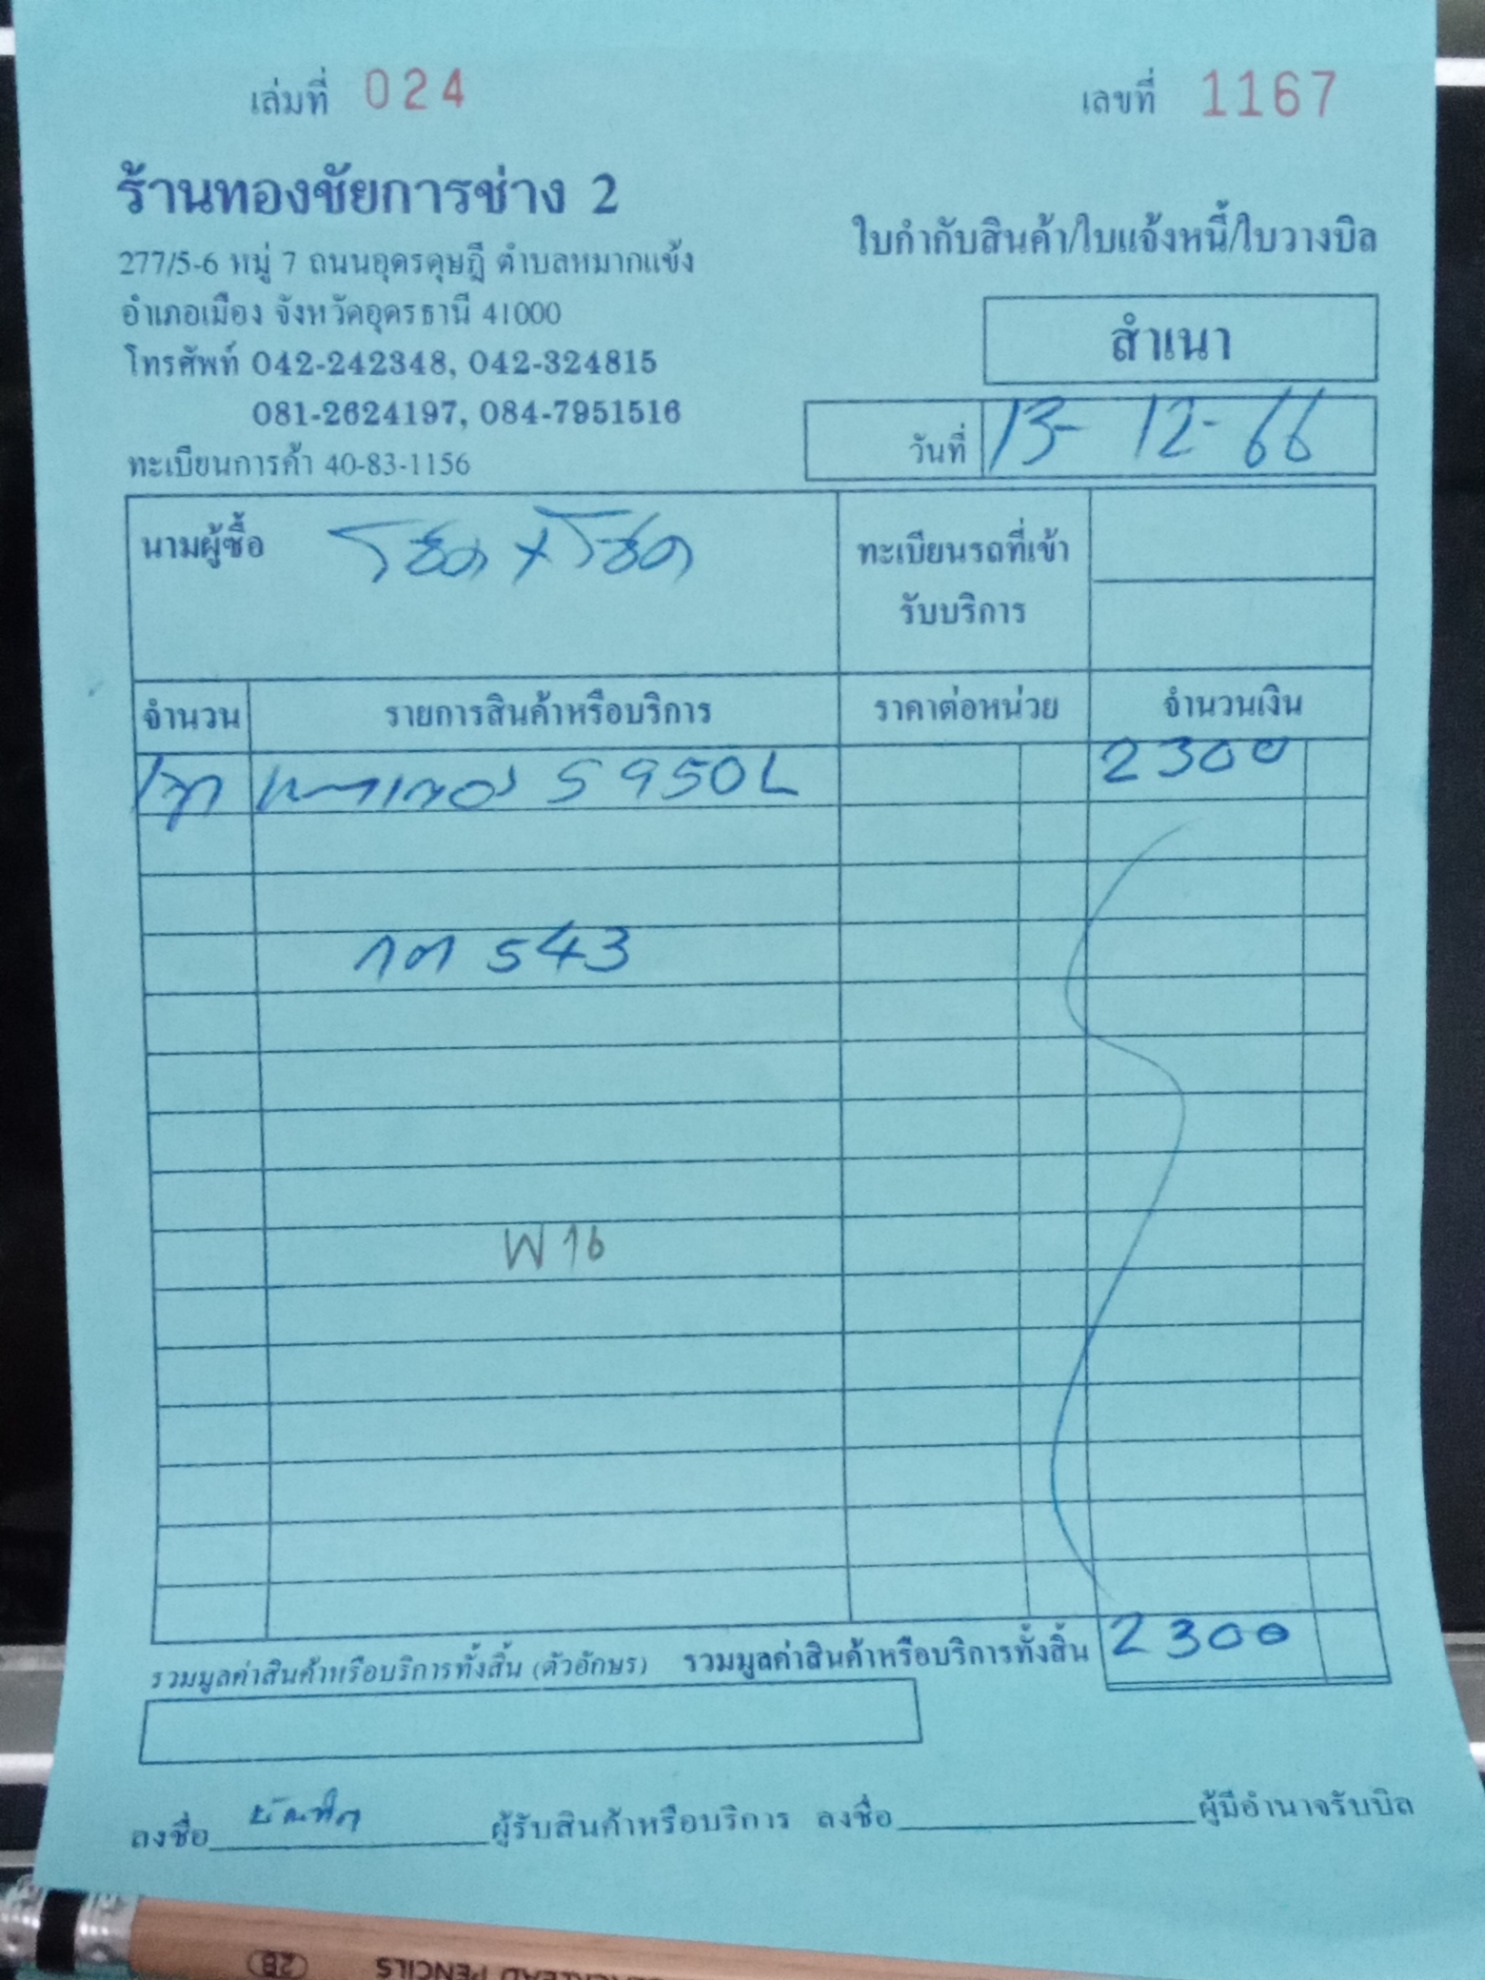 เล่มที่ 024
เลขที่ 1167
ร้านทองชัยการช่าง 2
277/5-6 หมู่ 7 ถนนอุดรดุษฎี ตำบลหมากแข้ง
อำเภอเมือง จังหวัดอุดรธานี 41000
โทรศัพท์ 042-242348, 042-324815
081-2624197, 084-7951516
ทะเบียนการค้า 40-83-1156
ใบกำกับสินค้า/ใบแจ้งหนี้/ใบวางบิล
สำเนา
วันที่ 13-12-66
นามผู้ซื้อ โชค+โชค
ทะเบียนรถที่เข้า
รับบริการ
จำนวน รายการสินค้าหรือบริการ ราคาต่อหน่วย จำนวนเงิน
5950L 2300
กต 543
W 16
รวมมูลค่าสินค้าหรือบริการทั้งสิ้น (ตัวอักษร) รวมมูลค่าสินค้าหรือบริการทั้งสิ้น 2300
ลงชื่อ ผู้รับสินค้าหรือบริการ ลงชื่อ ผู้มีอำนาจรับบิล
2B
PENCILS